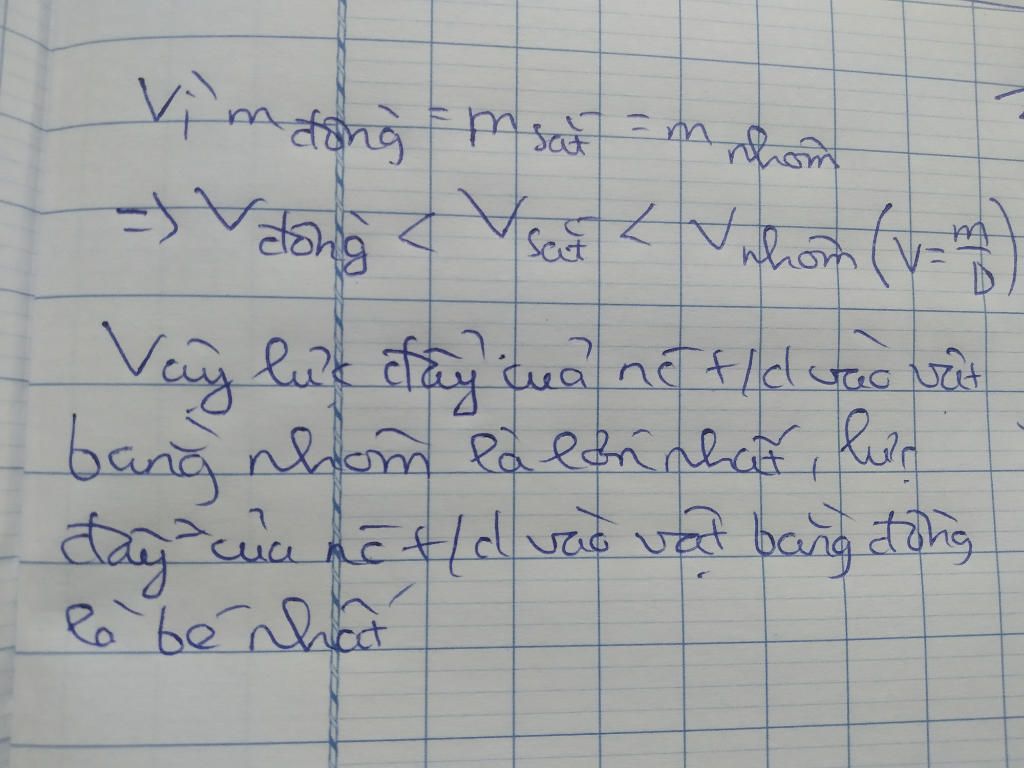 Vì m đồng = m sắt = m nhôm
=> V đồng < V sắt < V nhôm (V = m/D)
Vậy lực đẩy của nc t/d vào vật
bằng nhôm là lớn nhất, lực
đẩy của nc t/d vào vật bằng đồng
là bé nhất